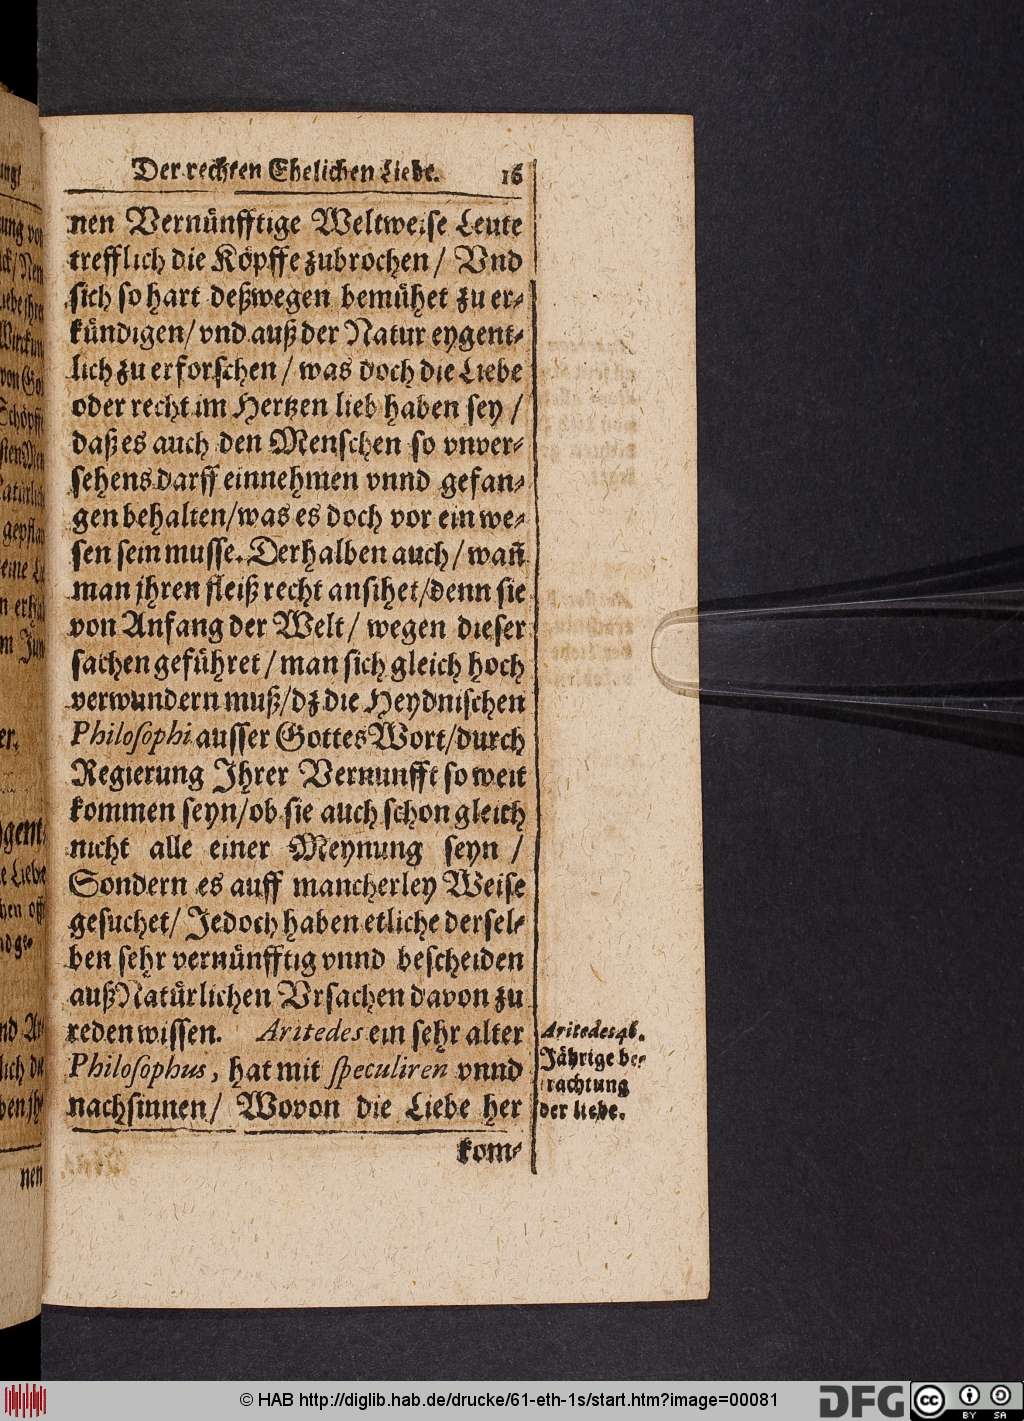 Der rechten Ehelichen Liebe. 16
nen Vernünfftige Weltweise Leute
trefflich die Köpffe zubrochen / Vnd
sich so hart deßwegen bemühet zu er-
kündigen/ vnd auß der Natur eygent-
lich zu erforschen / was doch die Liebe
oder recht im Hertzen lieb haben sey /
daß es auch den Menschen so vnver-
sehens darff einnehmen vnnd gefan-
gen behalten/was es doch vor ein we-
sen sein musse. Derhalben auch / wañ
man jhren fleiß recht ansihet/denn sie
von Anfang der Welt / wegen dieser
sachen geführet / man sich gleich hoch
verwundern muß/dz die Heydnischen
Philosophi ausser Gottes Wort/durch
Regierung Jhrer Vernunfft so weit
kommen seyn/ob sie auch schon gleich
nicht alle einer Meynung seyn /
Sondern es auff mancherley Weise
gesuchet/ Jedoch haben etliche dersel-
ben sehr vernünfftig vnnd bescheiden
auß Natürlichen Vrsachen davon zu
reden wissen. Aritedes ein sehr alter
Philosophus, hat mit speculiren vnnd
nachsinnen/ Wovon die Liebe her
kom-
Aritedes 46.
Jährige be-
rachtung
der liebe.
nen
© HAB http://diglib.hab.de/drucke/61-eth-1s/start.htm?image=00081
DFG
cc
BY SA